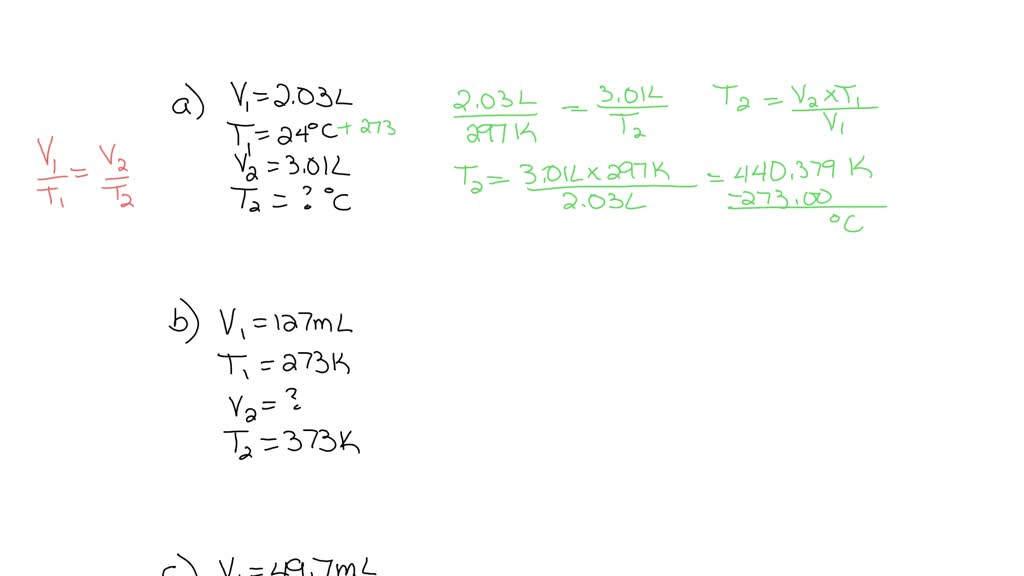 V₁/T₁ = V₂/T₂
a) V₁ = 2.03L
T₁ = 24°C + 273
V₂ = 3.01L
T₂ = ? °C
2.03L/297K = 3.01L/T₂
T₂ = V₂ x T₁/V₁
T₂ = 3.01L x 297K/2.03L = 440.379 K
-273.00
°C
b) V₁ = 127mL
T₁ = 273K
V₂ = ?
T₂ = 373K
c) V₁ = 49.7mL